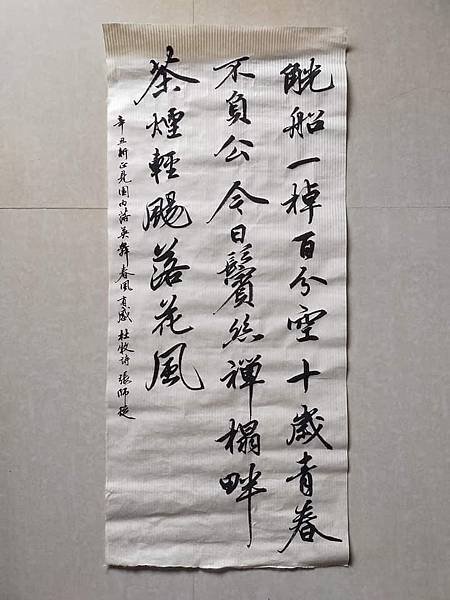 觥船一棹百分空十歲青春
不負公今日鬢絲禪榻畔
茶煙輕颺落花風
辛丑新正見園內落英舞春風有感 杜牧詩 張師